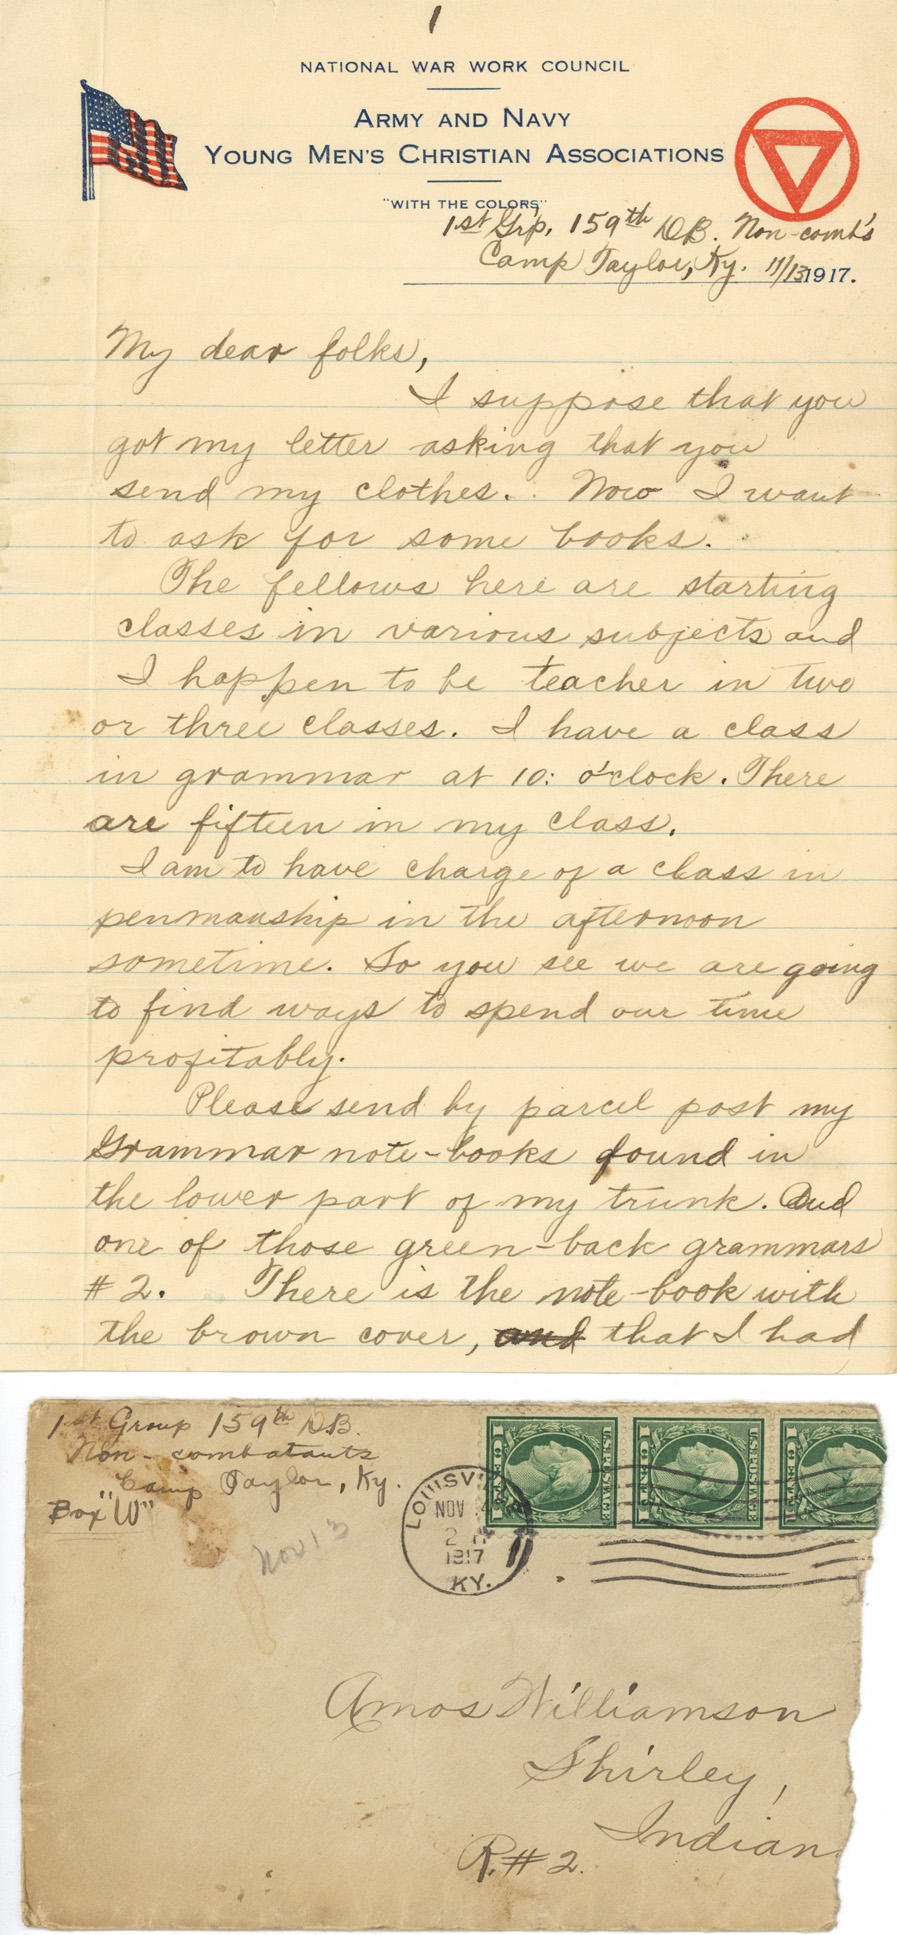 1
NATIONAL WAR WORK COUNCIL
ARMY AND NAVY
YOUNG MEN'S CHRISTIAN ASSOCIATIONS
"WITH THE COLORS"
1st Grp. 159th DB. Non-comb's
Camp Taylor, Ky. 11/13 1917.
My dear folks,
I suppose that you
got my letter asking that you
send my clothes. Now I want
to ask for some books.
The fellows here are starting
classes in various subjects and
I happen to be teacher in two
or three classes. I have a class
in grammar at 10: o'clock. There
are fifteen in my class.
I am to have charge of a class in
penmanship in the afternoon
sometime. So you see we are going
to find ways to spend our time
profitably.
Please send by parcel post my
Grammar note-books found in
the lower part of my trunk. And
one of those green-back grammars
#2. There is the note-book with
the brown cover, and that I had
1st Group 159th DB.
Non-combatants
Camp Taylor, Ky.
Box "W"
Nov 13
LOUISV
NOV
2
1917
KY.
1 CENT 1 U.S. POSTAGE
1 CENT 1 U.S. POSTAGE
1 CENT 1
Amos Williamson
Shirley,
Indian
R.#2.